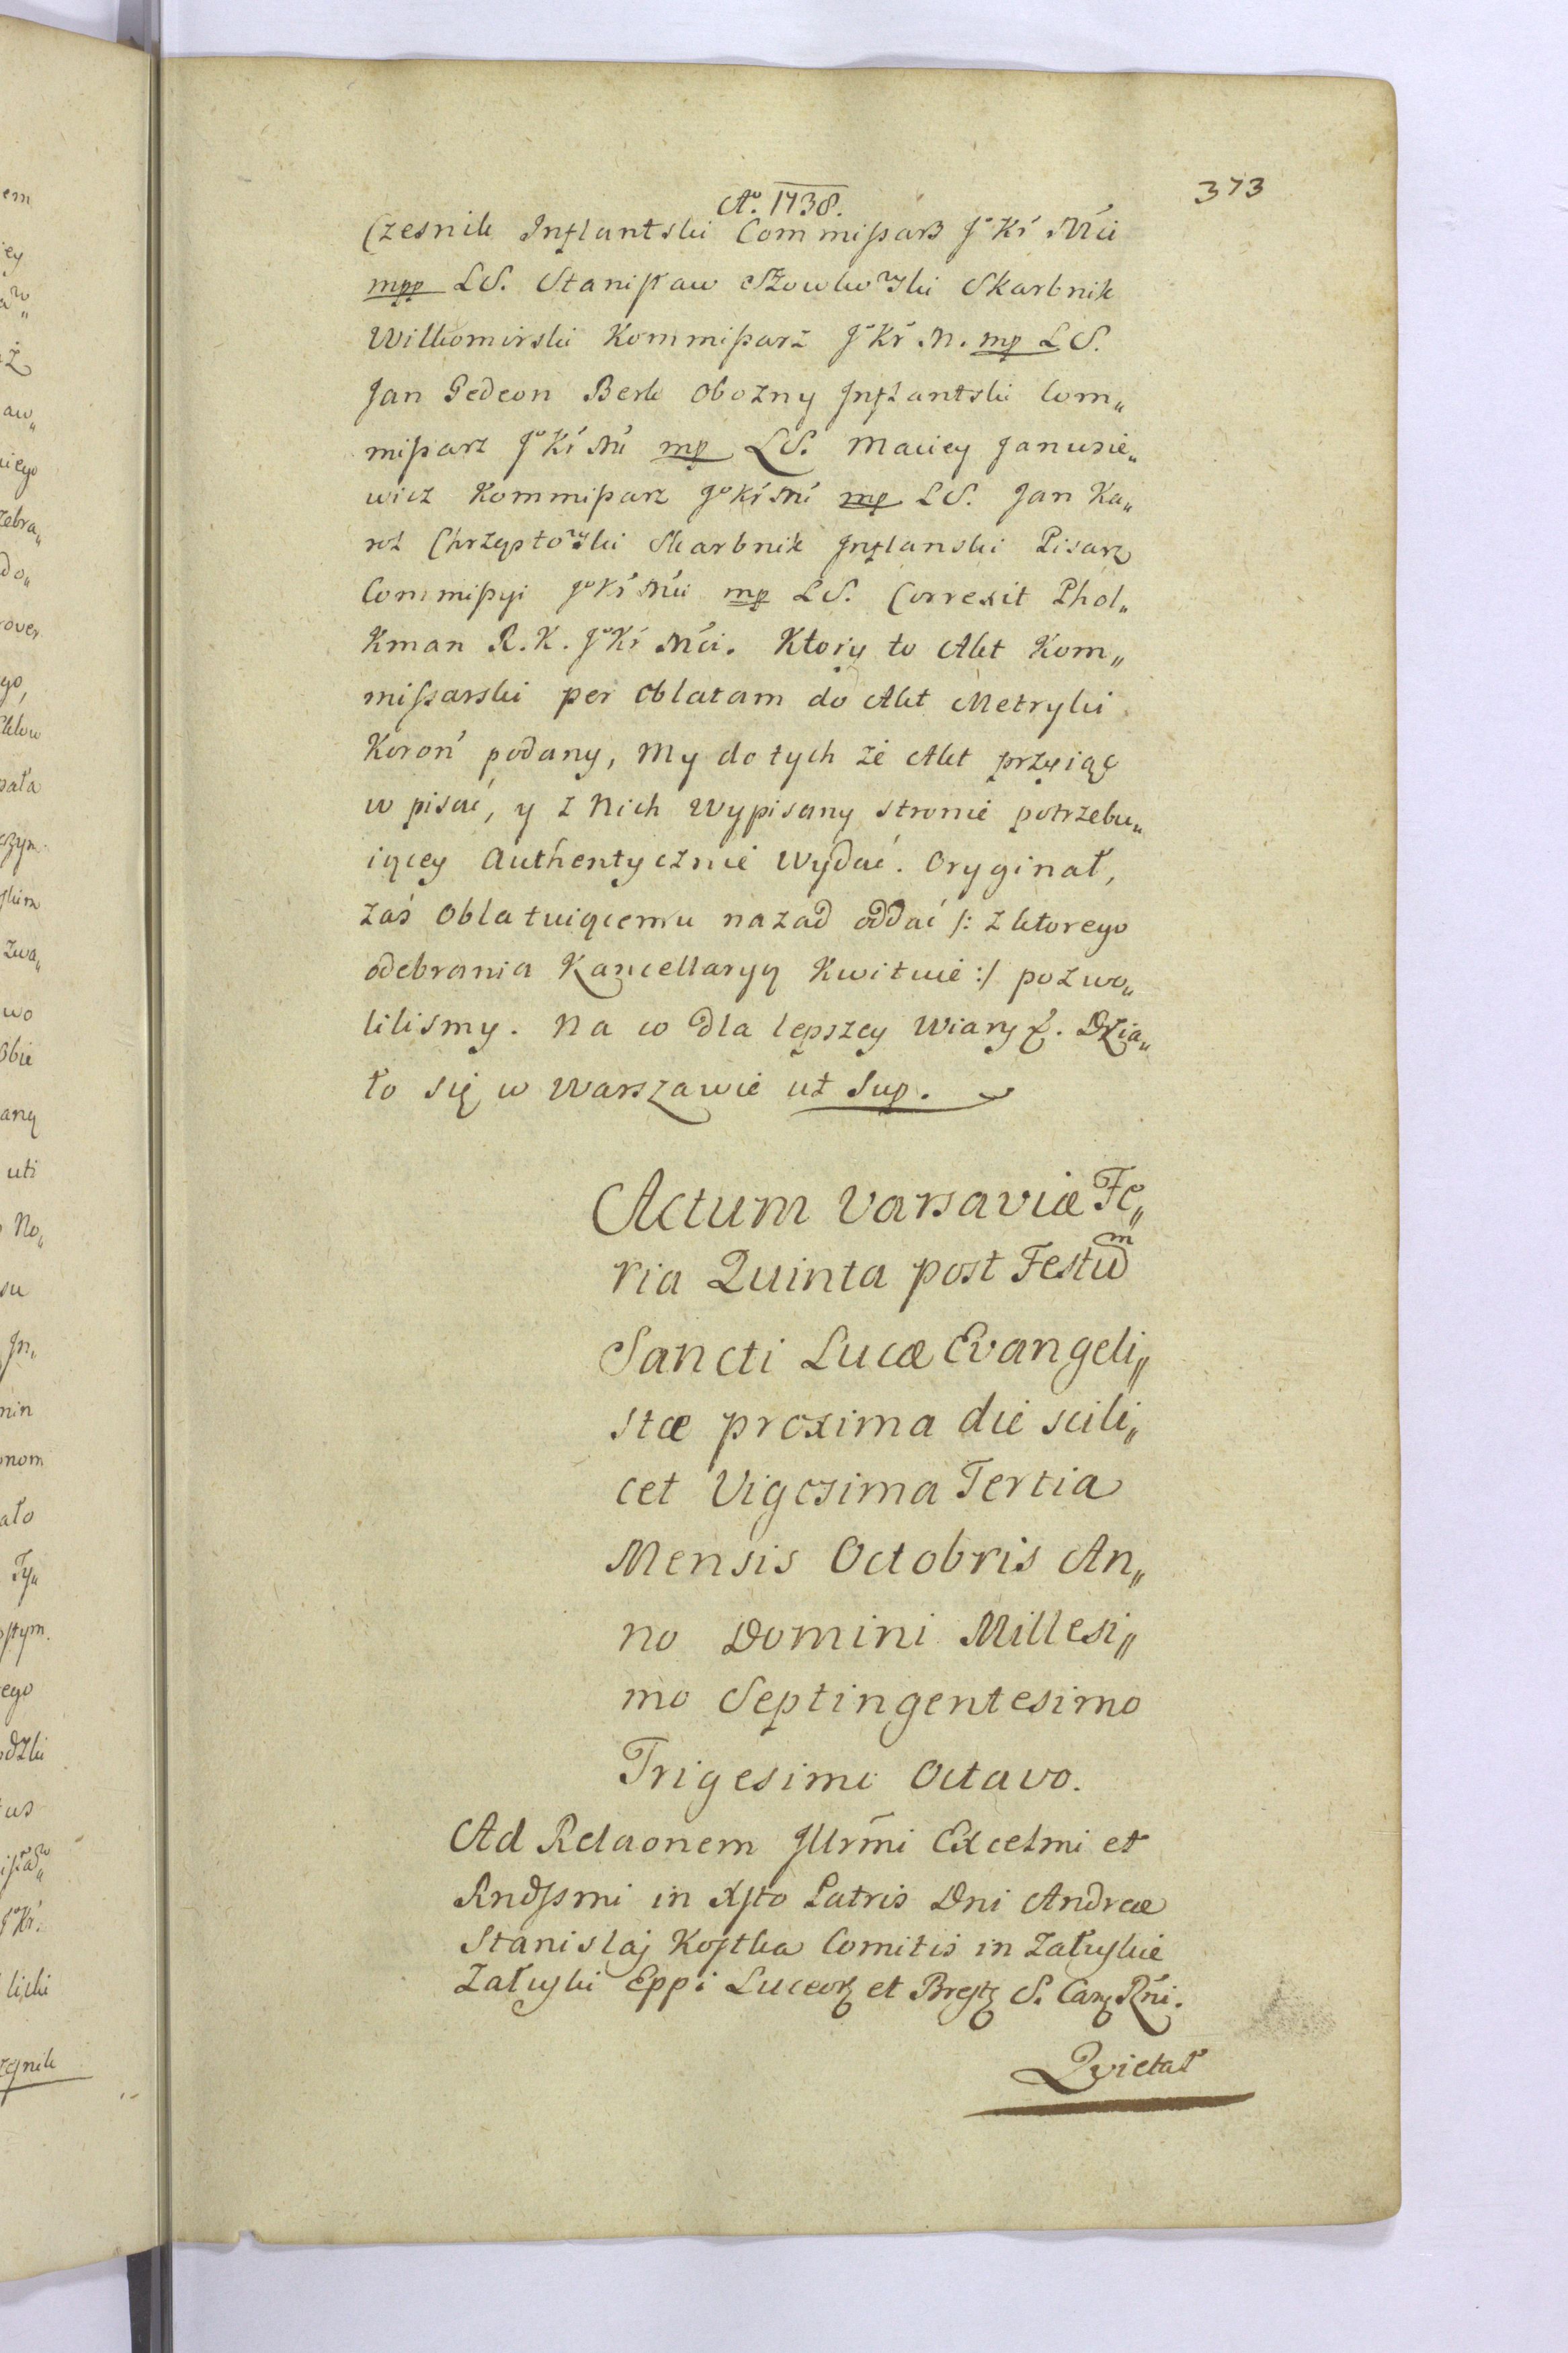 373
Ao. 1738.
Czesnik Inflantski Commißarz Jo Kr Mći
mpp LS. Stanisław Szowkowski Skarbnik
Wilkomirski Kommißarz Jo Kr M. mp LS.
Jan Gedeon Berk Obozny Inflantski Com„
mißarz Jo Kr Mći mp LS. Maciey Janusie„
wicz Kommißarz Jo Kr Mći mp LS. Jan Ka„
rol Chrząstowski Skarbnik Inflanski Pisarz
Commißyi Jo Kr Mći mp LS. Correxit Phol„
Kman R. K. Jo Kr Mći. Ktory to Akt Kom„
mißarski per Oblatam do Akt Metryki
Koroń podany, My do tych że Akt przyiąć
w pisać, y z Nich Wypisany stronie potrzebu„
iącey Authentycznie Wydać. Oryginał,
zaś Oblatuiącemu nazad oddać /: z ktorego
odebrania Kancellaryą Kwituie :/ pozwo„
lilismy. Na co dla lepszey Wiary &. Dzia„
ło się w Warszawie ut Sup.
Actum Varsaviæ Fe„
ria Quinta post Festum
Sancti Lucæ Evangeli„
stæ proxima die scili„
cet Vigesima Tertia
Mensis Octobris An„
no Domini Millesi„
mo Septingentesimo
Trigesimo Octavo.
Ad Relaonem Illrmi Excelmi et
Rndssmi in Xsto Patris Dni Andreæ
Stanislaj Kostka Comitis in Załuskie
Załuski Eppi Luceor et Brest S. Canc Rńi.
Qvietat